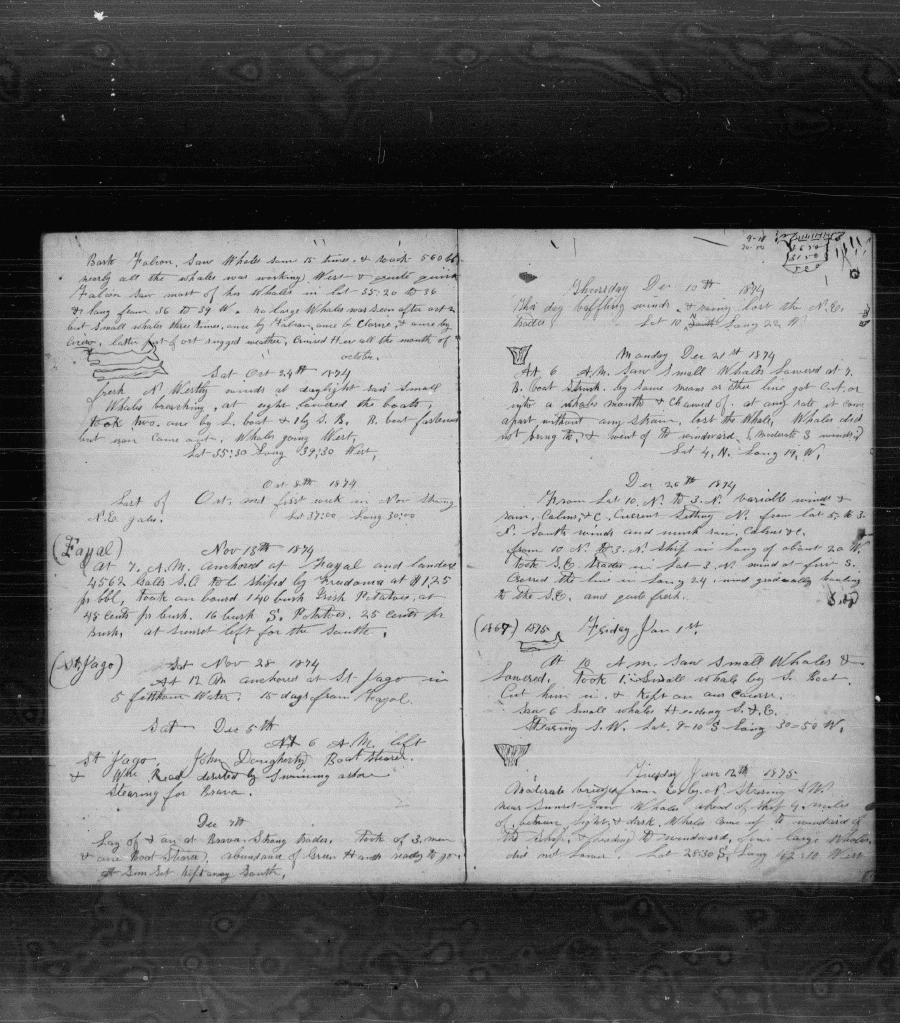 Bark Falcon, Saw Whales sum 15 times, & took 560 bbl
nearly all the whales was working West & quite quick
Falcon Saw most of her Whales in lat 35:20 to 36
& Long from 36 to 39 W. no large Whales was seen after oct 2
but Small whales three times, once by Falcon, once by Clarice, & once by
latter part of oct rugged weather, Cruised Here all the month of
october.
Sat Oct 24th 1874
fresh N Westly winds at daylight saw Small
Whales breaching, at eight lowered the boats,
took two. one by L. boat & 1 by S. B, B. boat fastened
but iron Came out. Whales going West,
Lat 35:30 Long 39:30 West,
Oct 8th 1874
Last of Oct. and first week in Nov Strong
N.E gales. Lat 37:00 Long 30:00
(Fayal) Nov 13th 1874
At 7. A.M. anchored at Fayal and landed
4562 Galls S.O to be shiped by Fredonia at $1,25
pr bbl, took on board 140 bush Irish Potatoes, at
45 cents pr bush. 16 bush S. Potatoes. 25 cents pr
bush, at Sunset left for the South.
(St. Jago) Sat Nov 28 1874
At 12 M anchored at St Jago in
5 fathom Water, 15 days from Fayal.
Sat Dec 5th
At 6 A.M. left
St Jago, John Dougherty Boat Stearer.
& Wm Read deserted by Swiming ashore
Stearing for Brava.
Dec 7th
Lay of & on at Brava Strong trades, took of 3 men
& one Boat Stearer, abundance of Green Hands ready to go.
At Sun Set Kept away South.
Thursday Dec 10th 1874
This day baffling winds & rainy lost the N.E.
trades Lat 10 N Long 22 W
Monday Dec 21st 1874
At 6 A.M. Saw Small Whales Lowered at 7.
B. boat Struck. by some means or other line got Cut, or
into a whales mouth & Chawed of. at any rate it came
apart without any strain, lost the Whale, Whales did
not bring to, & went of to windward. (Moderate S winds)
Lat 4, N. Long 19, W,
Dec 26th 1874
From Lat 10. N. to 3. N. Variable winds &
rain, Calms, & C, Current Setting N. from lat 5 to 3.
N. South winds and much rain, Calms &c.
from 10 N. to 3. N. Ship in Long of about 20 W.
took S.E. trades in Lat 3. N wind at first S.
Crossed the line in Long 24 wind gradually hauling
to the S.E. and quite fresh.
1875 Friday Jan 1st.
At 10 A.M. Saw Small Whales &
Lowered. took 1 Small whale by S. Boat.
Cut him in, & Kept on our Course.
Saw 6 Small whales Heading S. & E.
Stearing S.W. Lat. 8-10 S Long 30-50 W.
Tuesday Jan 12th 1875
Moderate breezes from E. by. N Stearing S.W.
near Sunset Saw Whales ahead of Ship 4 miles
of, between light, & dark, Whales came up to windward of
the Ship, & to windward, large Whales
did not lower Lat 28:30 S, Long West